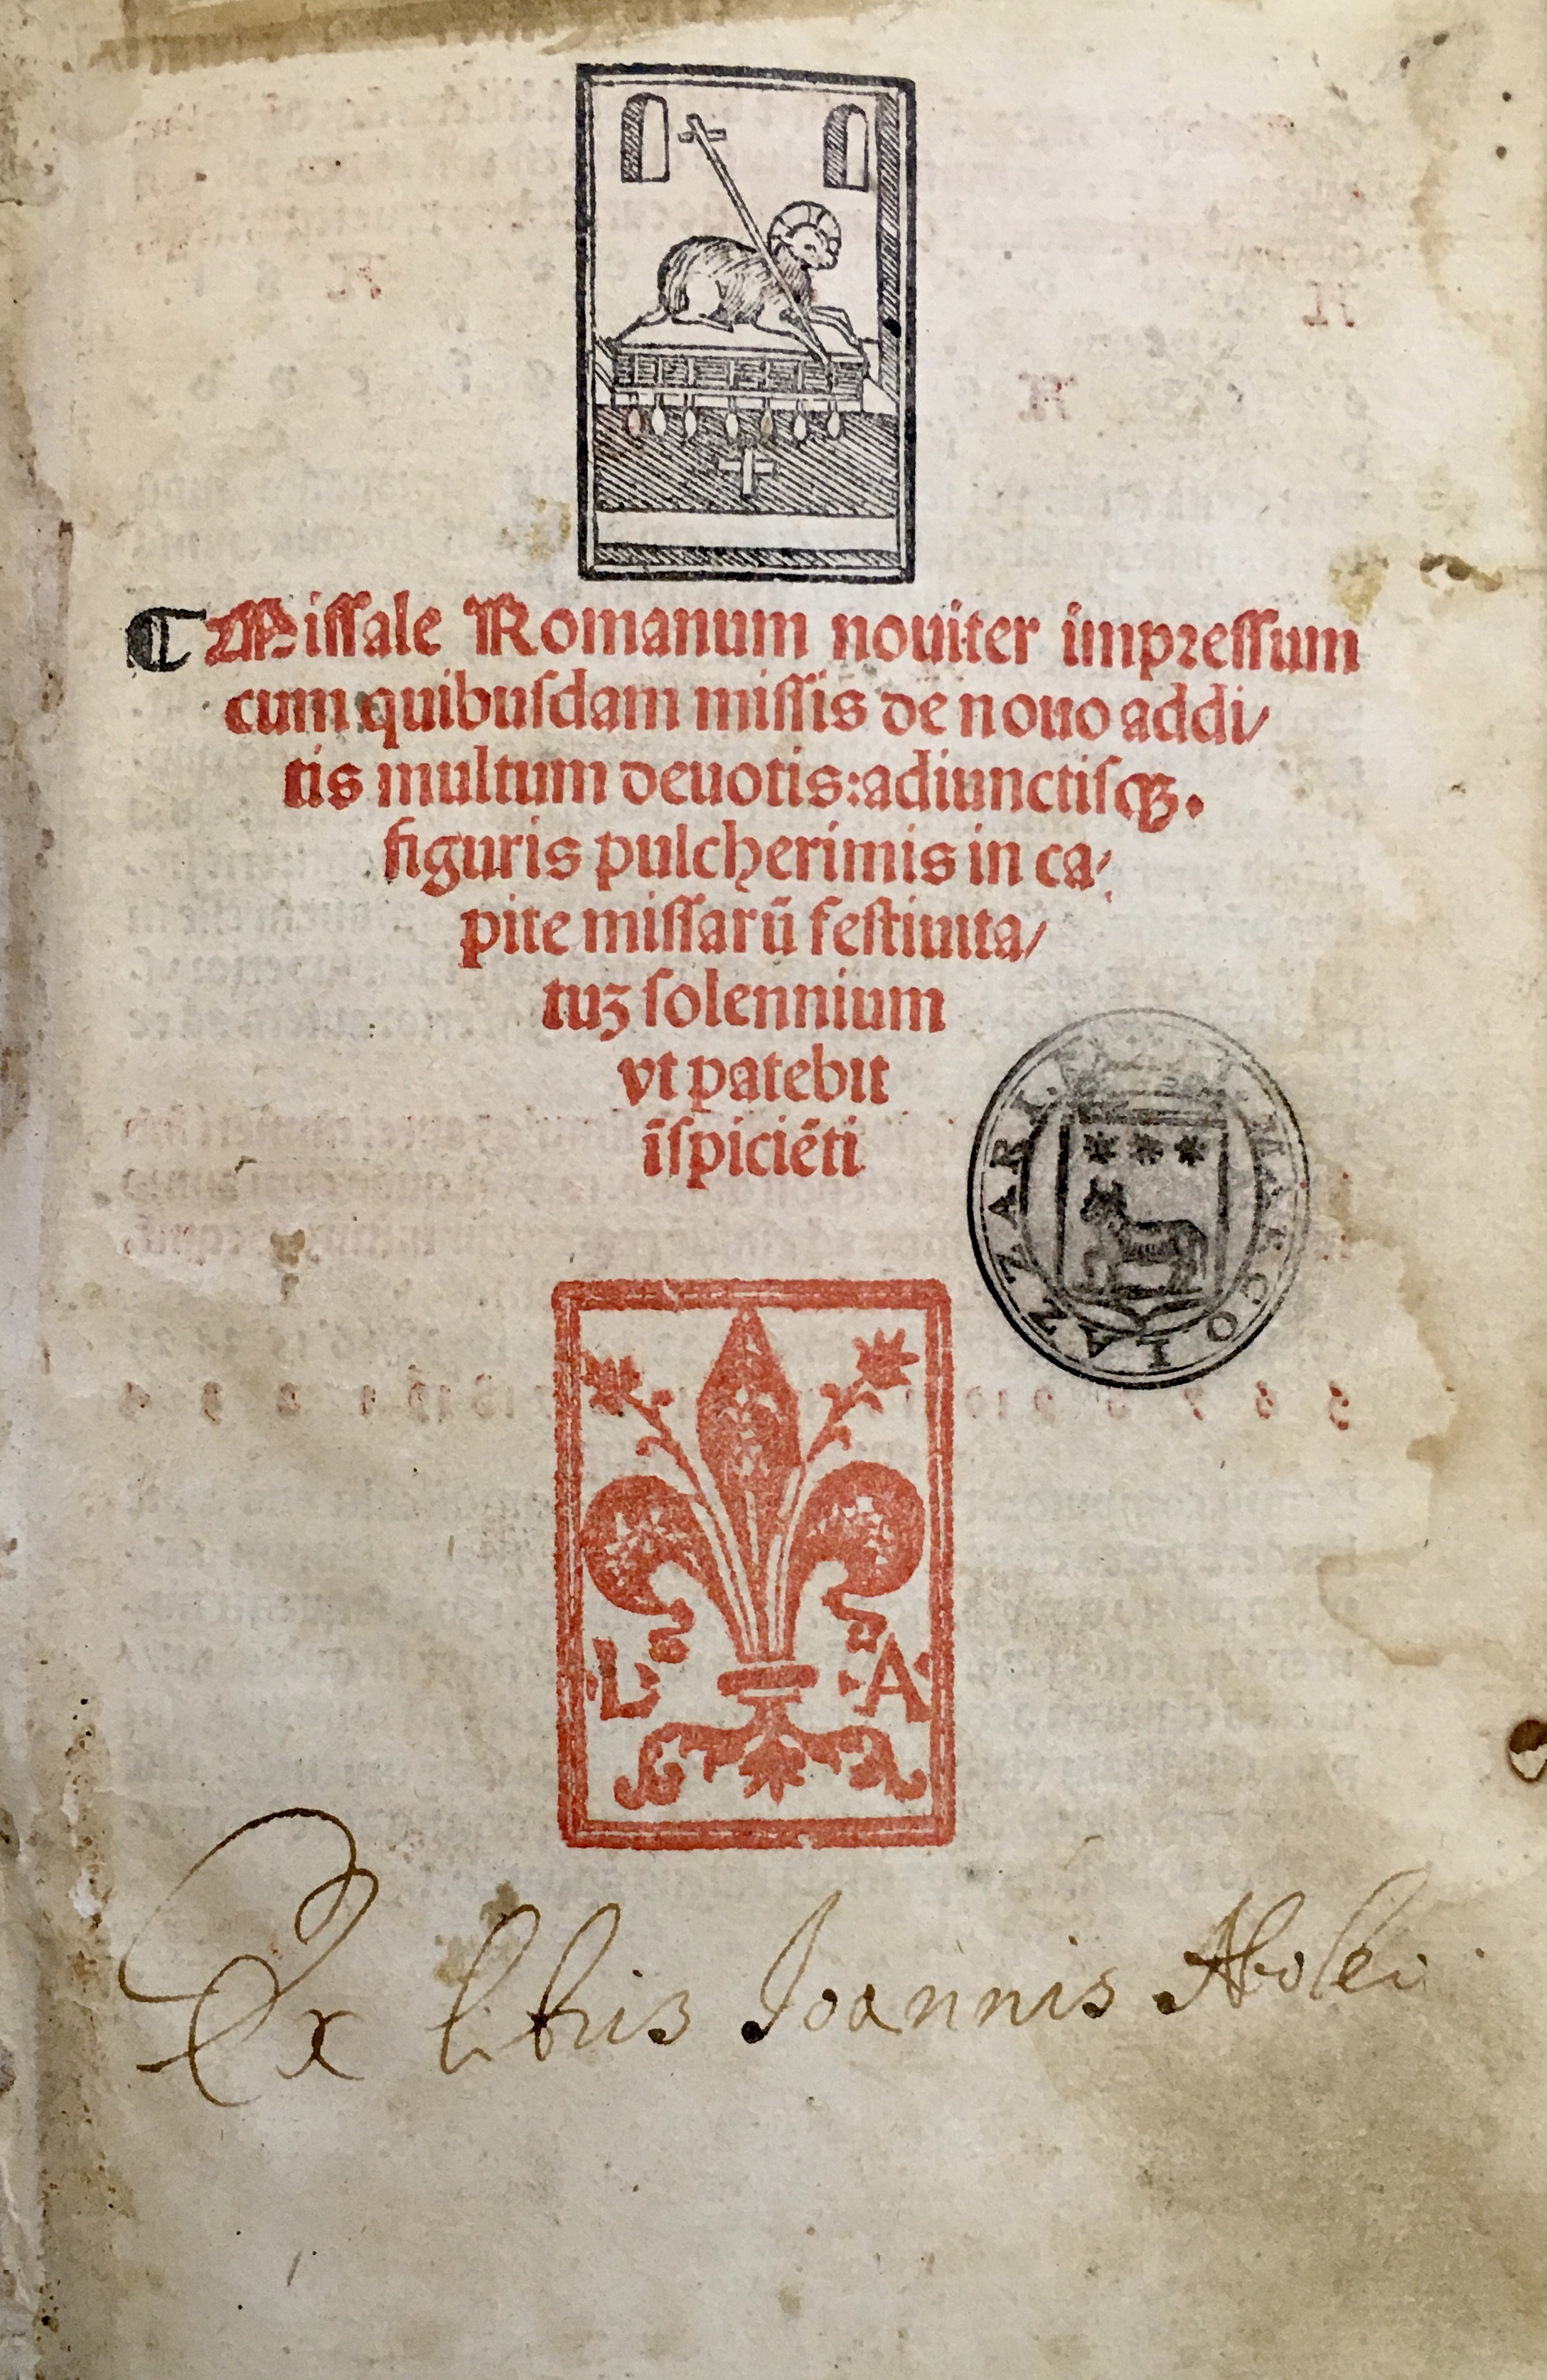 Missale Romanum nouiter impressum
cum quibusdam missis de nouo addi/
tis multum deuotis:adiunctisqꝫ.
figuris pulcherimis in ca/
pite missarū festiuita/
tuꝫ solennium
vt patebit
īspiciēti
MARCO LAZZARI
L A
Ex libris Joannis